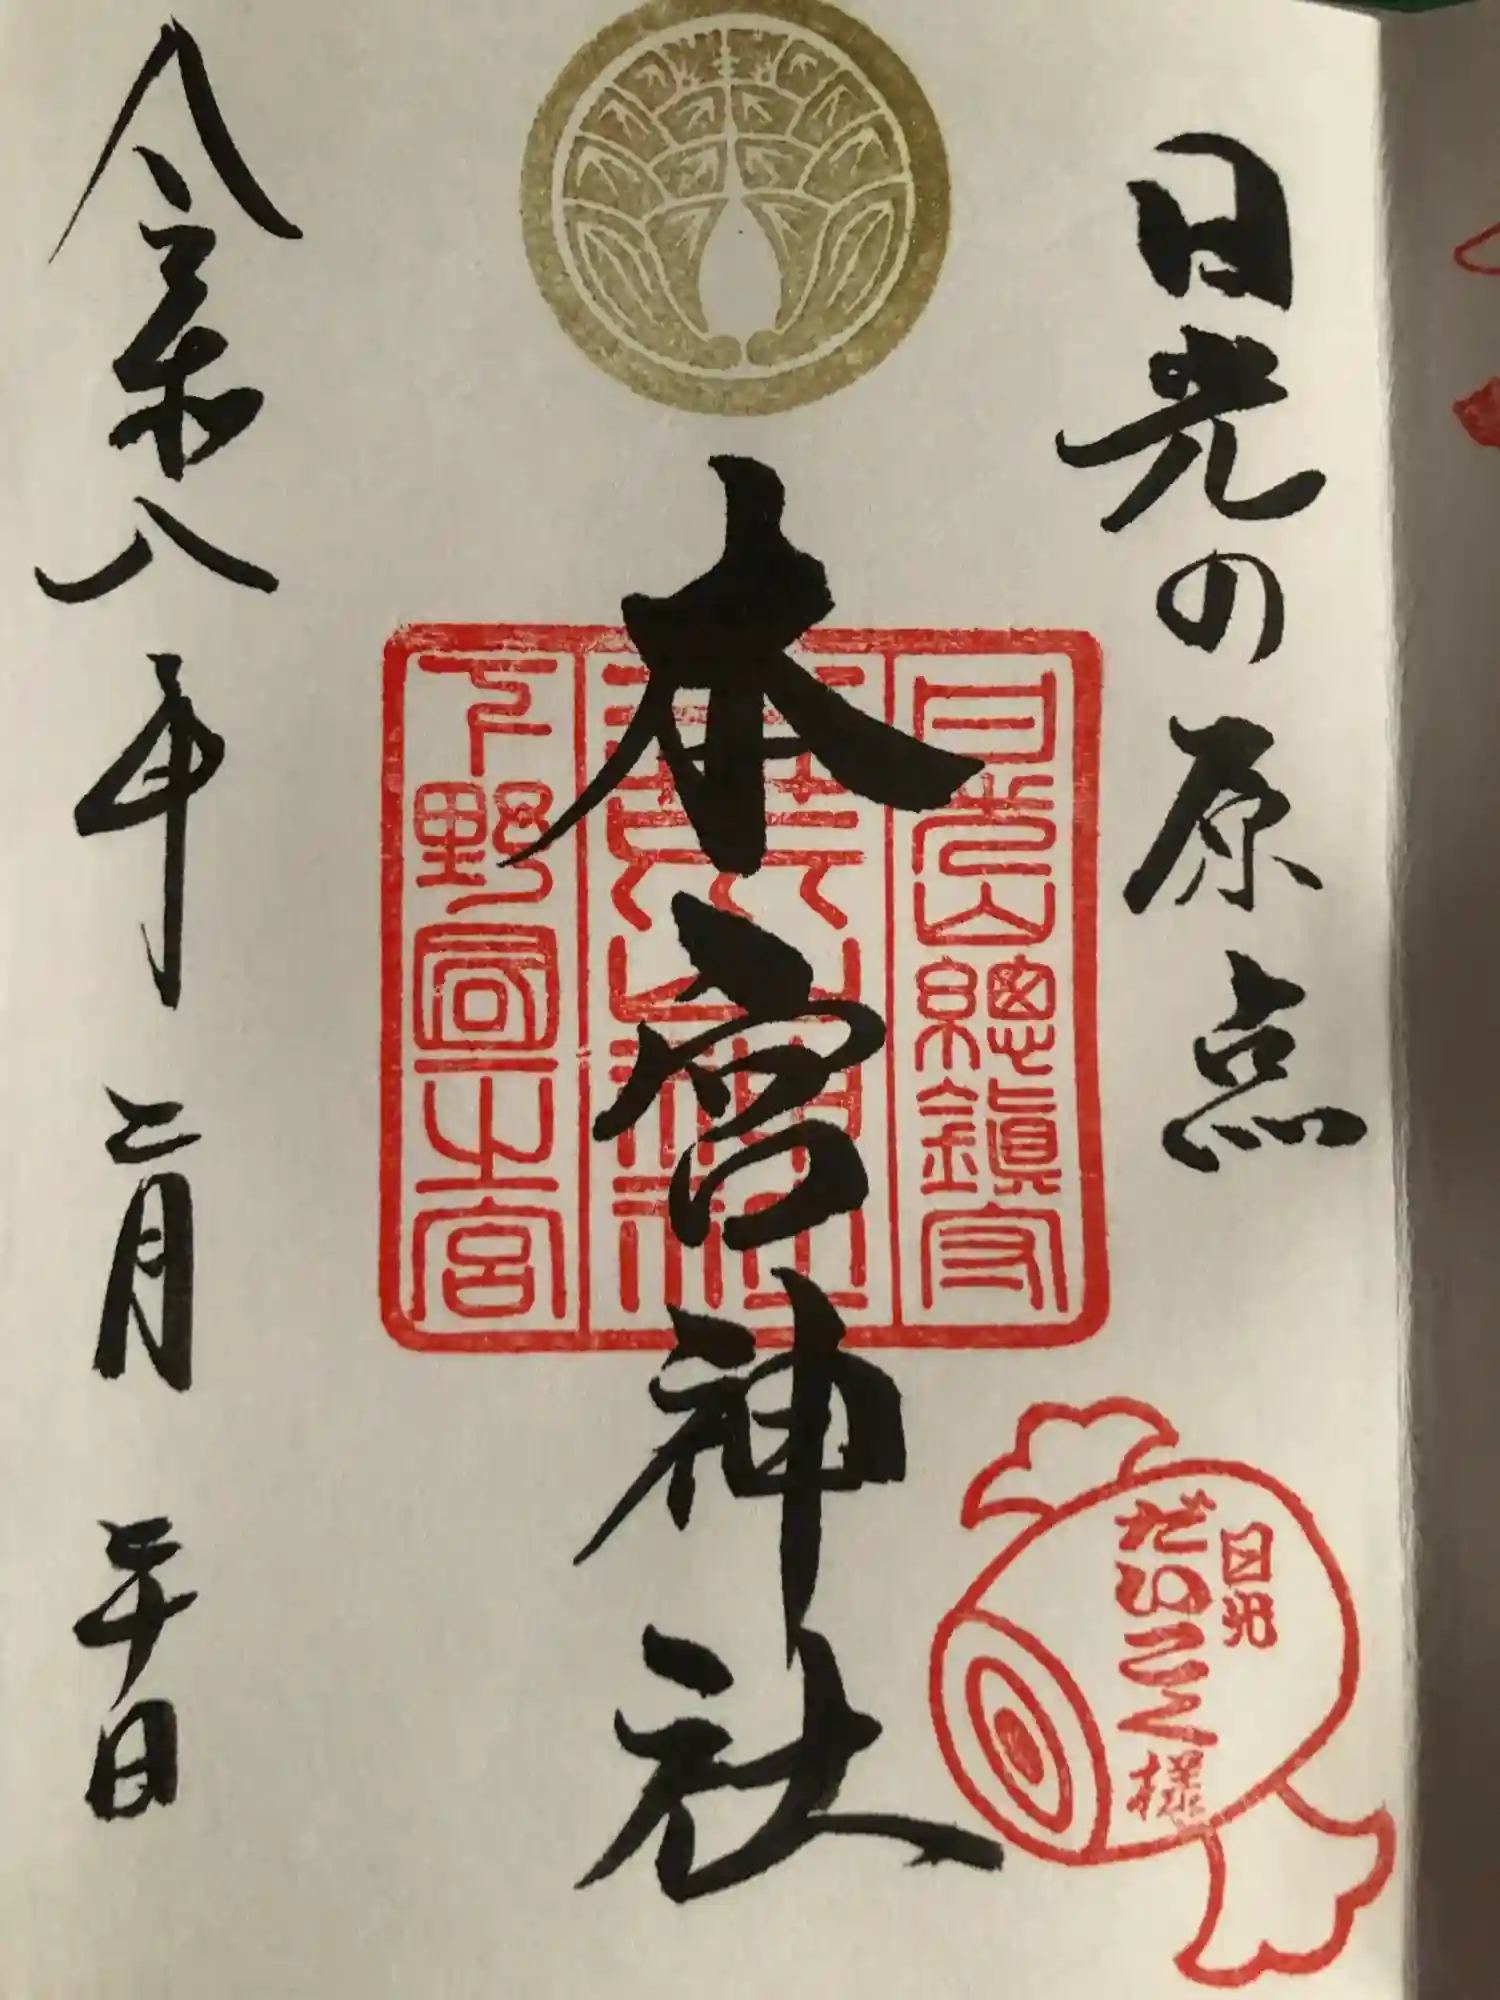 日光の原点
日光山總鎮守
本宮神社
下野國一之宮
日光
だいこく様
令和八年二月
日